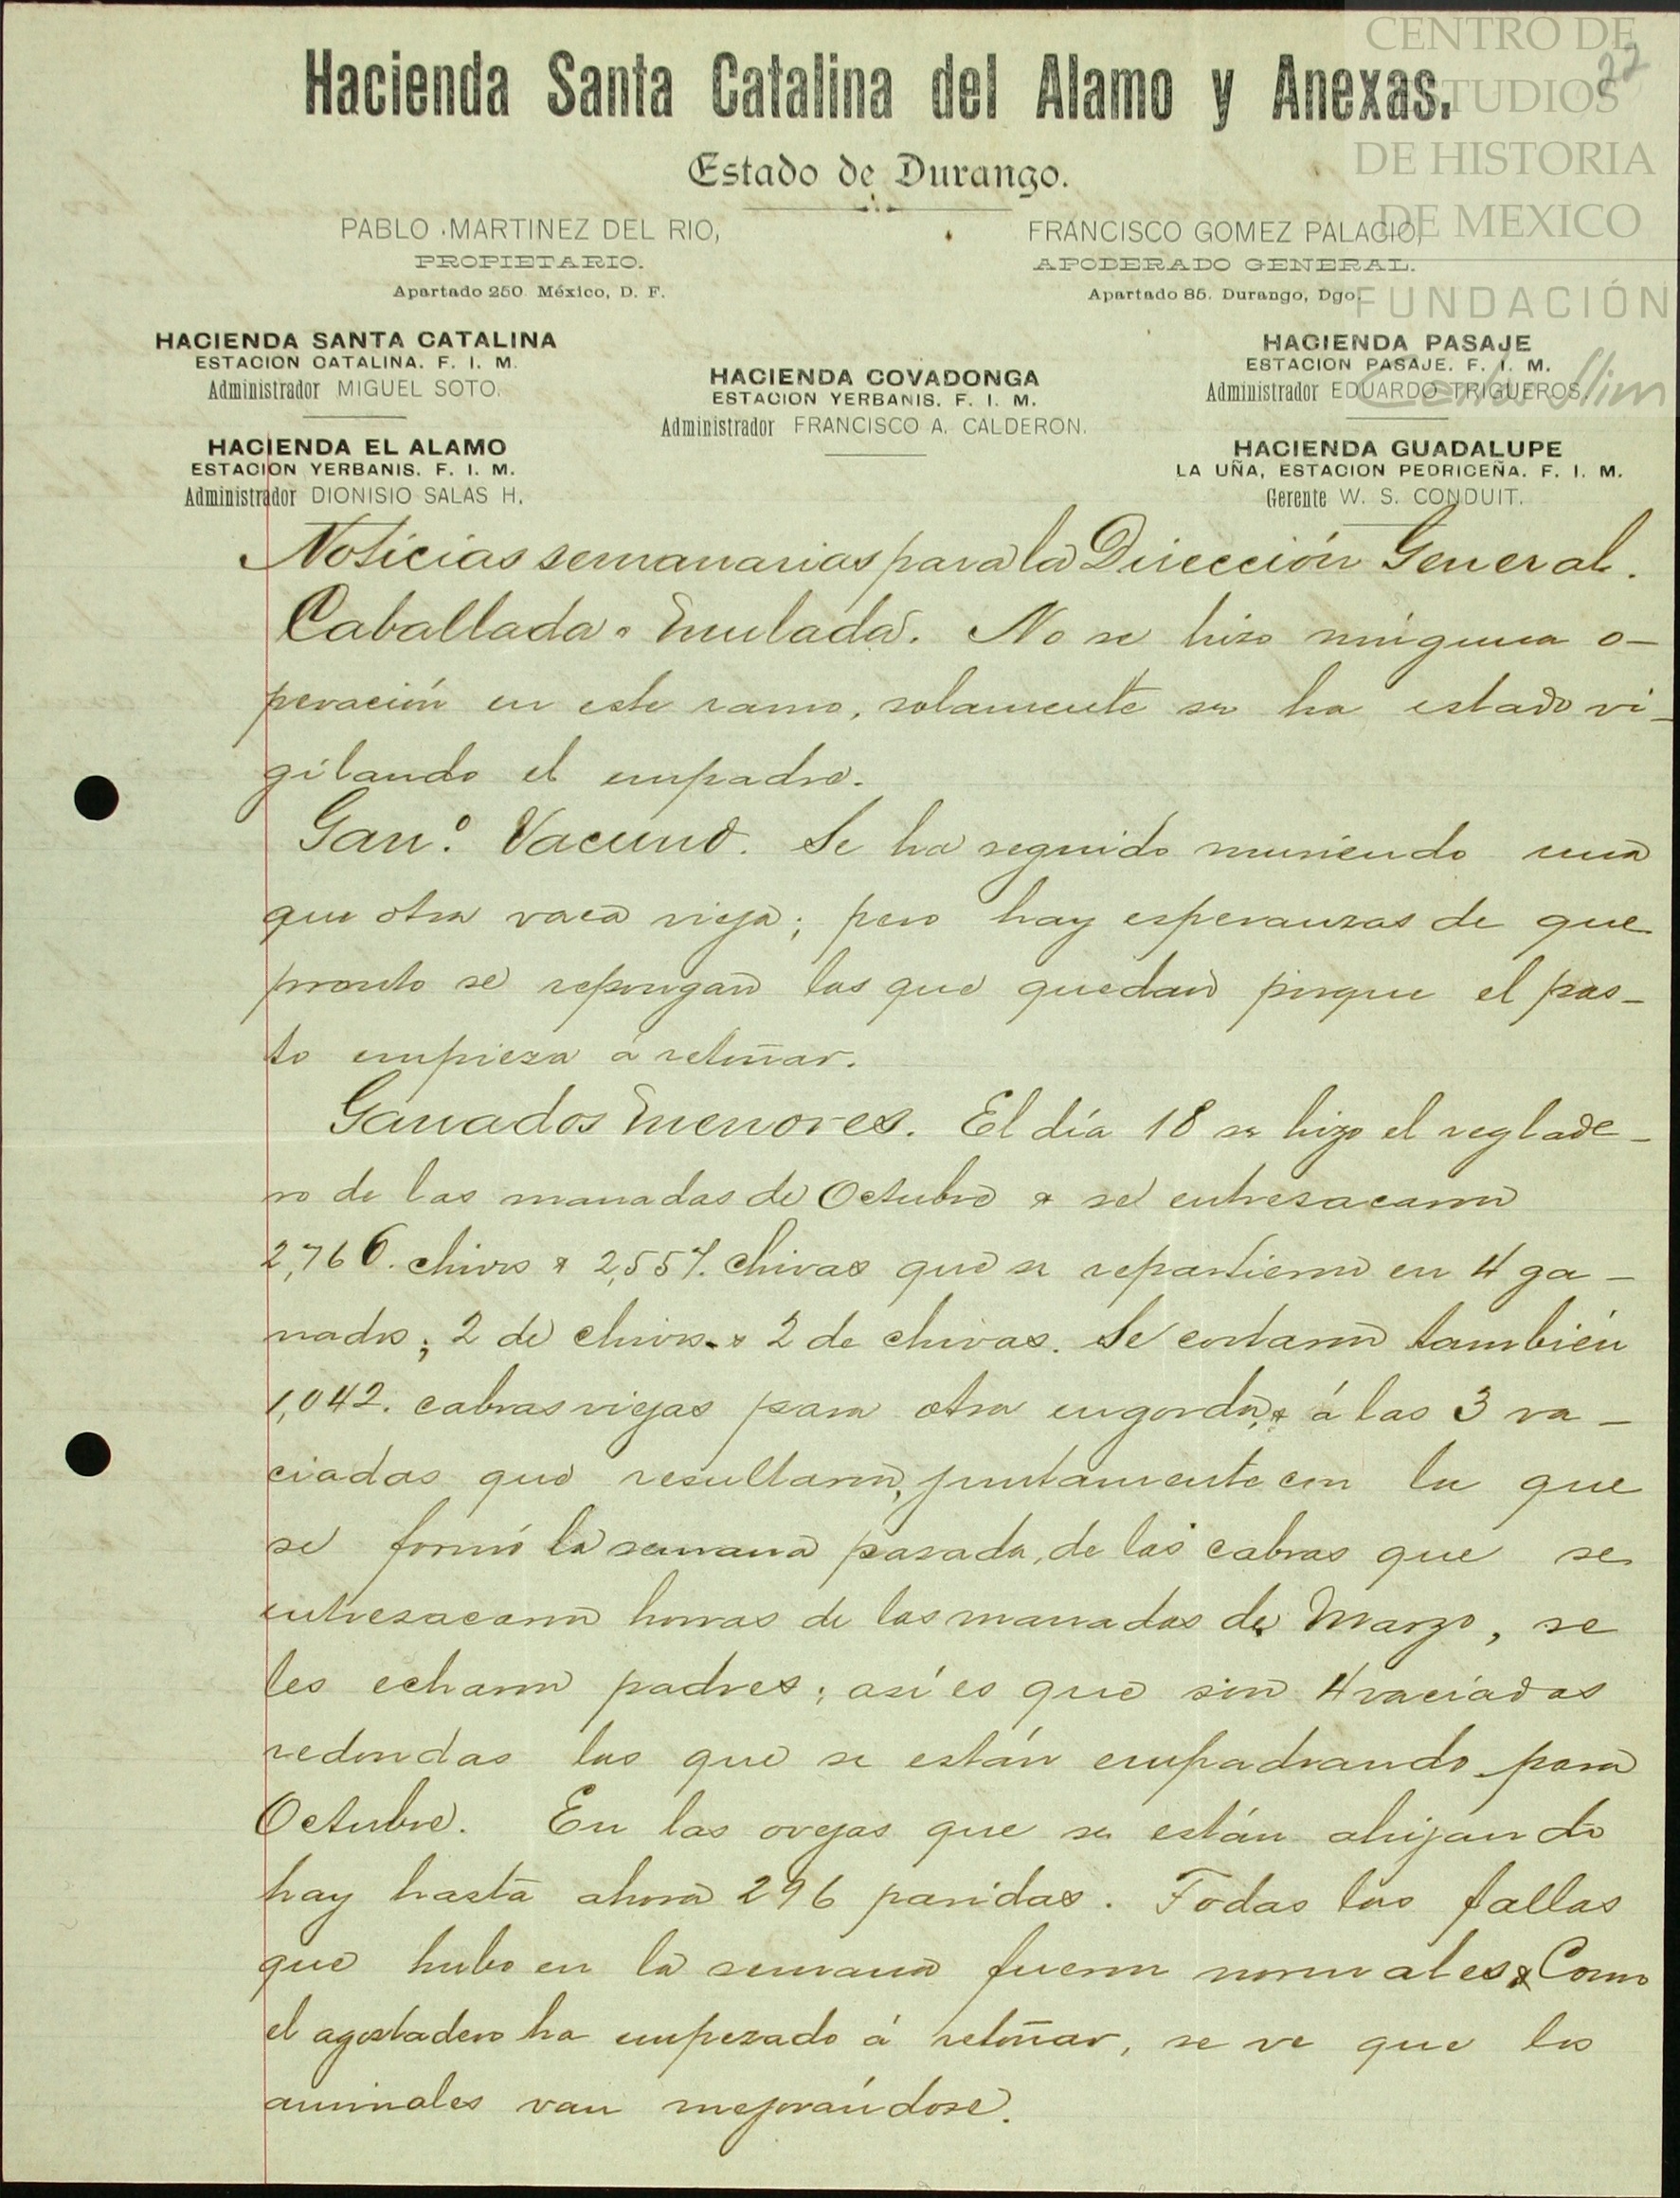 CENTRO DE
ESTUDIOS
DE HISTORIA
DE MEXICO
FUNDACIÓN
Carlos Slim
22
Hacienda Santa Catalina del Alamo y Anexas.
Estado de Durango.
PABLO MARTINEZ DEL RIO,
PROPIETARIO.
Apartado 250. México, D. F.
FRANCISCO GOMEZ PALACIO,
APODERADO GENERAL.
Apartado 85. Durango, Dgo.
HACIENDA SANTA CATALINA
ESTACION CATALINA. F. I. M.
Administrador MIGUEL SOTO.
HACIENDA EL ALAMO
ESTACION YERBANIS. F. I. M.
Administrador DIONISIO SALAS H.
HACIENDA COVADONGA
ESTACION YERBANIS. F. I. M.
Administrador FRANCISCO A. CALDERON.
HACIENDA PASAJE
ESTACION PASAJE. F. I. M.
Administrador EDUARDO TRIGUEROS.
HACIENDA GUADALUPE
LA UÑA, ESTACION PEDRICEÑA. F. I. M.
Gerente W. S. CONDUIT.
Noticias semanarias para la Dirección General.
Caballada & mulada. No se hizo ninguna o-
peración en este ramo, solamente se ha estado vi-
gilando el empadre.
Gan.º Vacuno. Se ha seguido muriendo una
que otra vaca vieja; pero hay esperanzas de que
pronto se repongan las que quedan porque el pas-
to empieza á retoñar.
Ganados menores. El día 18 se hizo el reglade-
ro de las manadas de Octubre & se entresacaron
2,766. chivos & 2,557. chivas que se repartieron en 4 ga-
nados; 2 de chivos & 2 de chivas. Se cortaron también
1,042. cabras viejas para otra engorda, & á las 3 va-
ciadas que resultaron, juntamente con la que
se formó la semana pasada, de las cabras que se
entresacaron horras de las manadas de Marzo, se
les echaron padres; así es que son 4 vaciadas
redondas las que se están empadrando para
Octubre. En las ovejas que se están ahijando
hay hasta ahora 296 paridas. Todas las fallas
que hubo en la semana fueron normales & Como
el agostadero ha empezado á retoñar, se ve que los
animales van mejorándose.